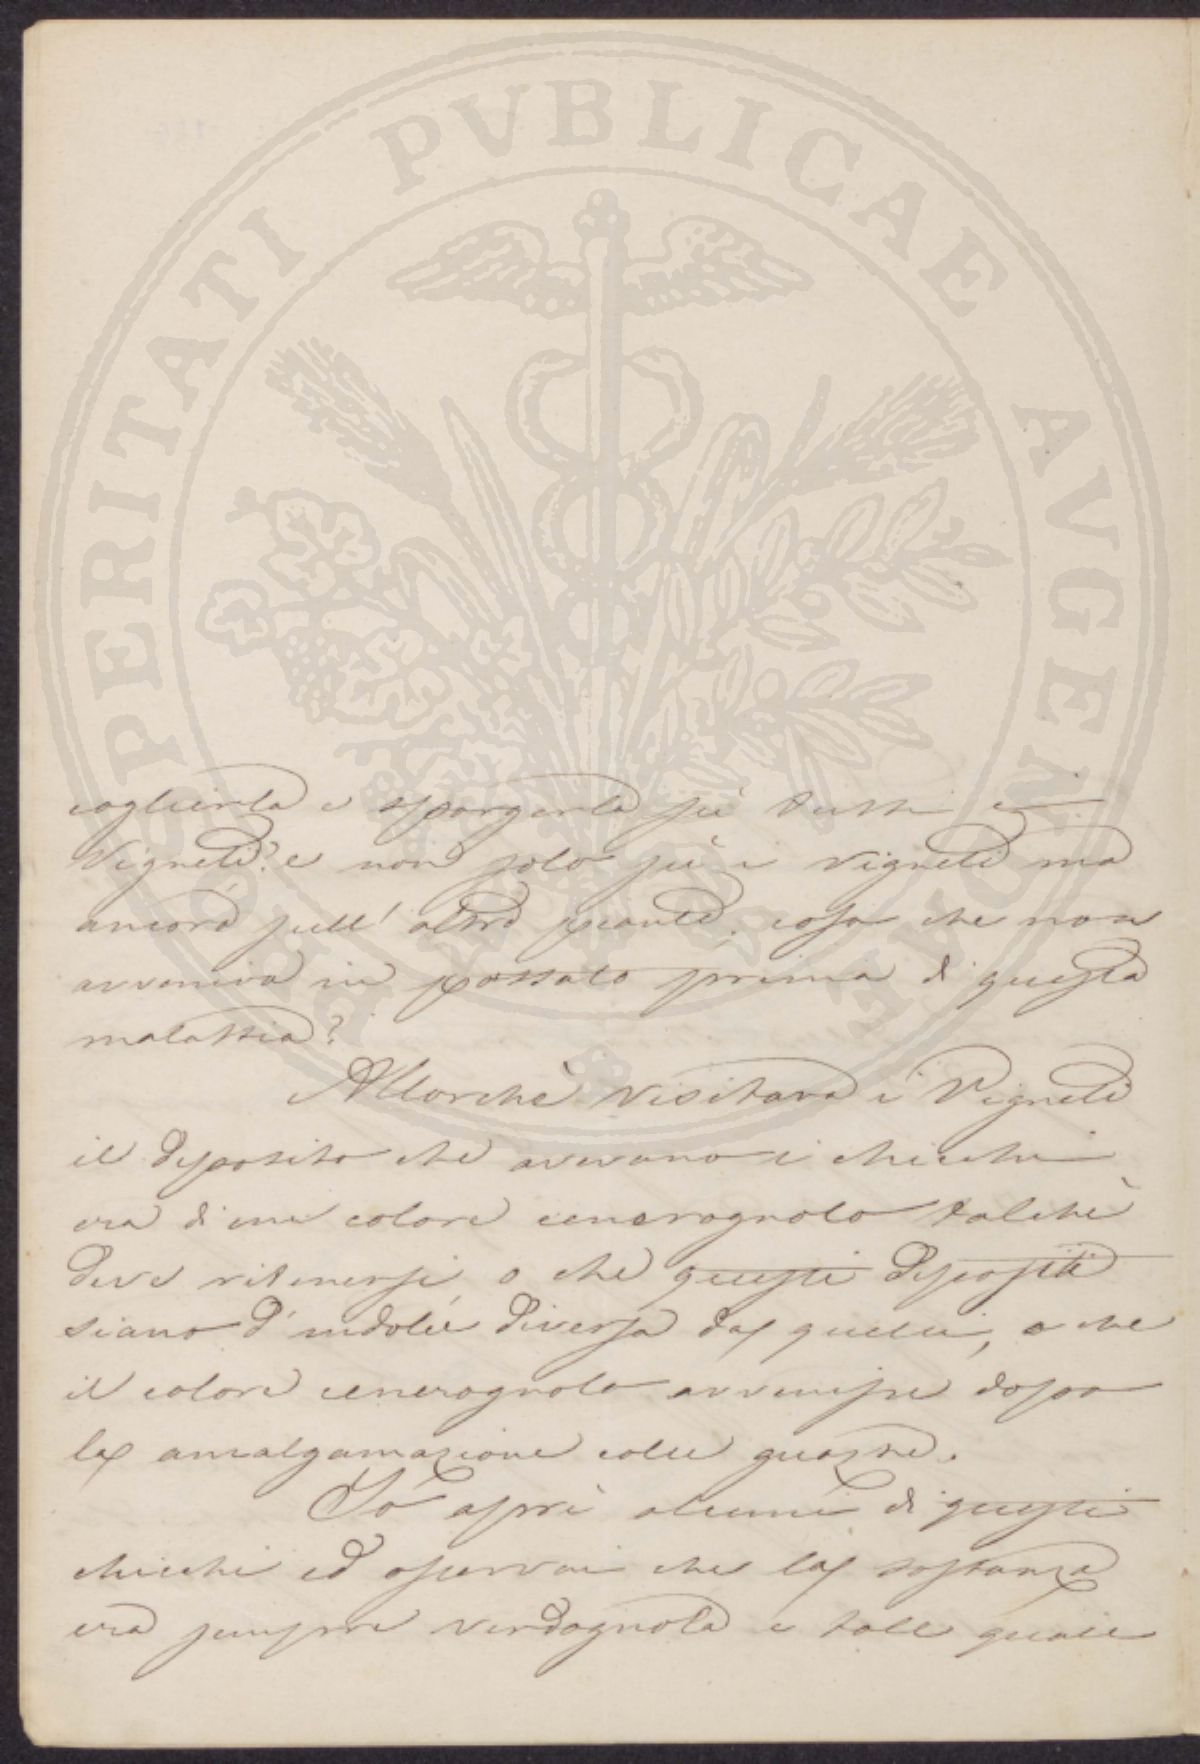 PROSPERITATI PVBLICAE AVGENDAE
coglierla e spargerla su tutti i
Vigneti? e non solo su i vigneti ma
ancora sull' altre piante, cosa che non
avveniva in passato prima di questa
malattia?
Allorchè visitava i Vigneti
il deposito che avevano i chicchi
era di un colore cenerognolo talchè
deve ritenersi, o che questi depositi
siano d' indole diversa da quelli, o che
il colore cenerognolo avvenisse dopo
la amalgamazione colle
Io aprì alcuni di questi
chicchi ed osservai che la sostanza
era sempre verdognola e tale quale